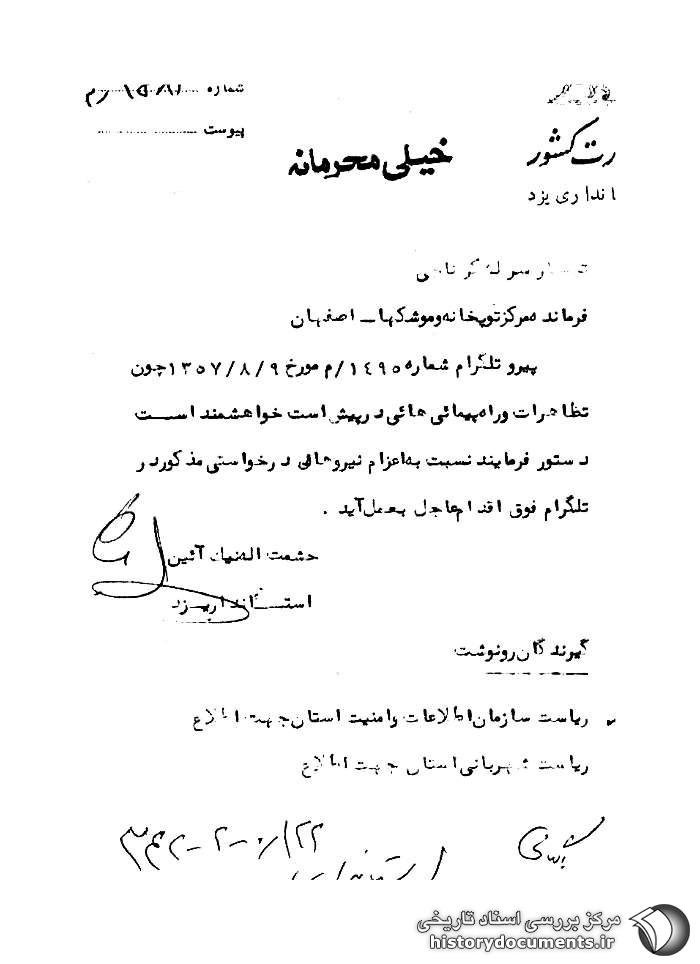 شماره ۱۵/۸۱۰ رم
پیوست
رت کشور
خیلی محرمانه
انداری یزد
فرمانده مرکز توپخانه و موشکها ـ اصفهان
پیرو تلگرام شماره ۱٤۹۵/م مورخ ۱۳۵۷/۸/۹ چون
تظاهرات و راه پیمائی هائی در پیش است خواهشمند است
دستور فرمایند نسبت به اعزام نیروهای درخواستی مذکور در
تلگرام فوق اقدام عاجل بعمل آید .
حشمت اله نیک آئین
استاندار یزد
گیرندگان رونوشت
ریاست سازمان اطلاعات و امنیت استان جهت اطلاع
ریاست شهربانی استان جهت اطلاع
مرکز بررسی اسناد تاریخی
historydocuments.ir